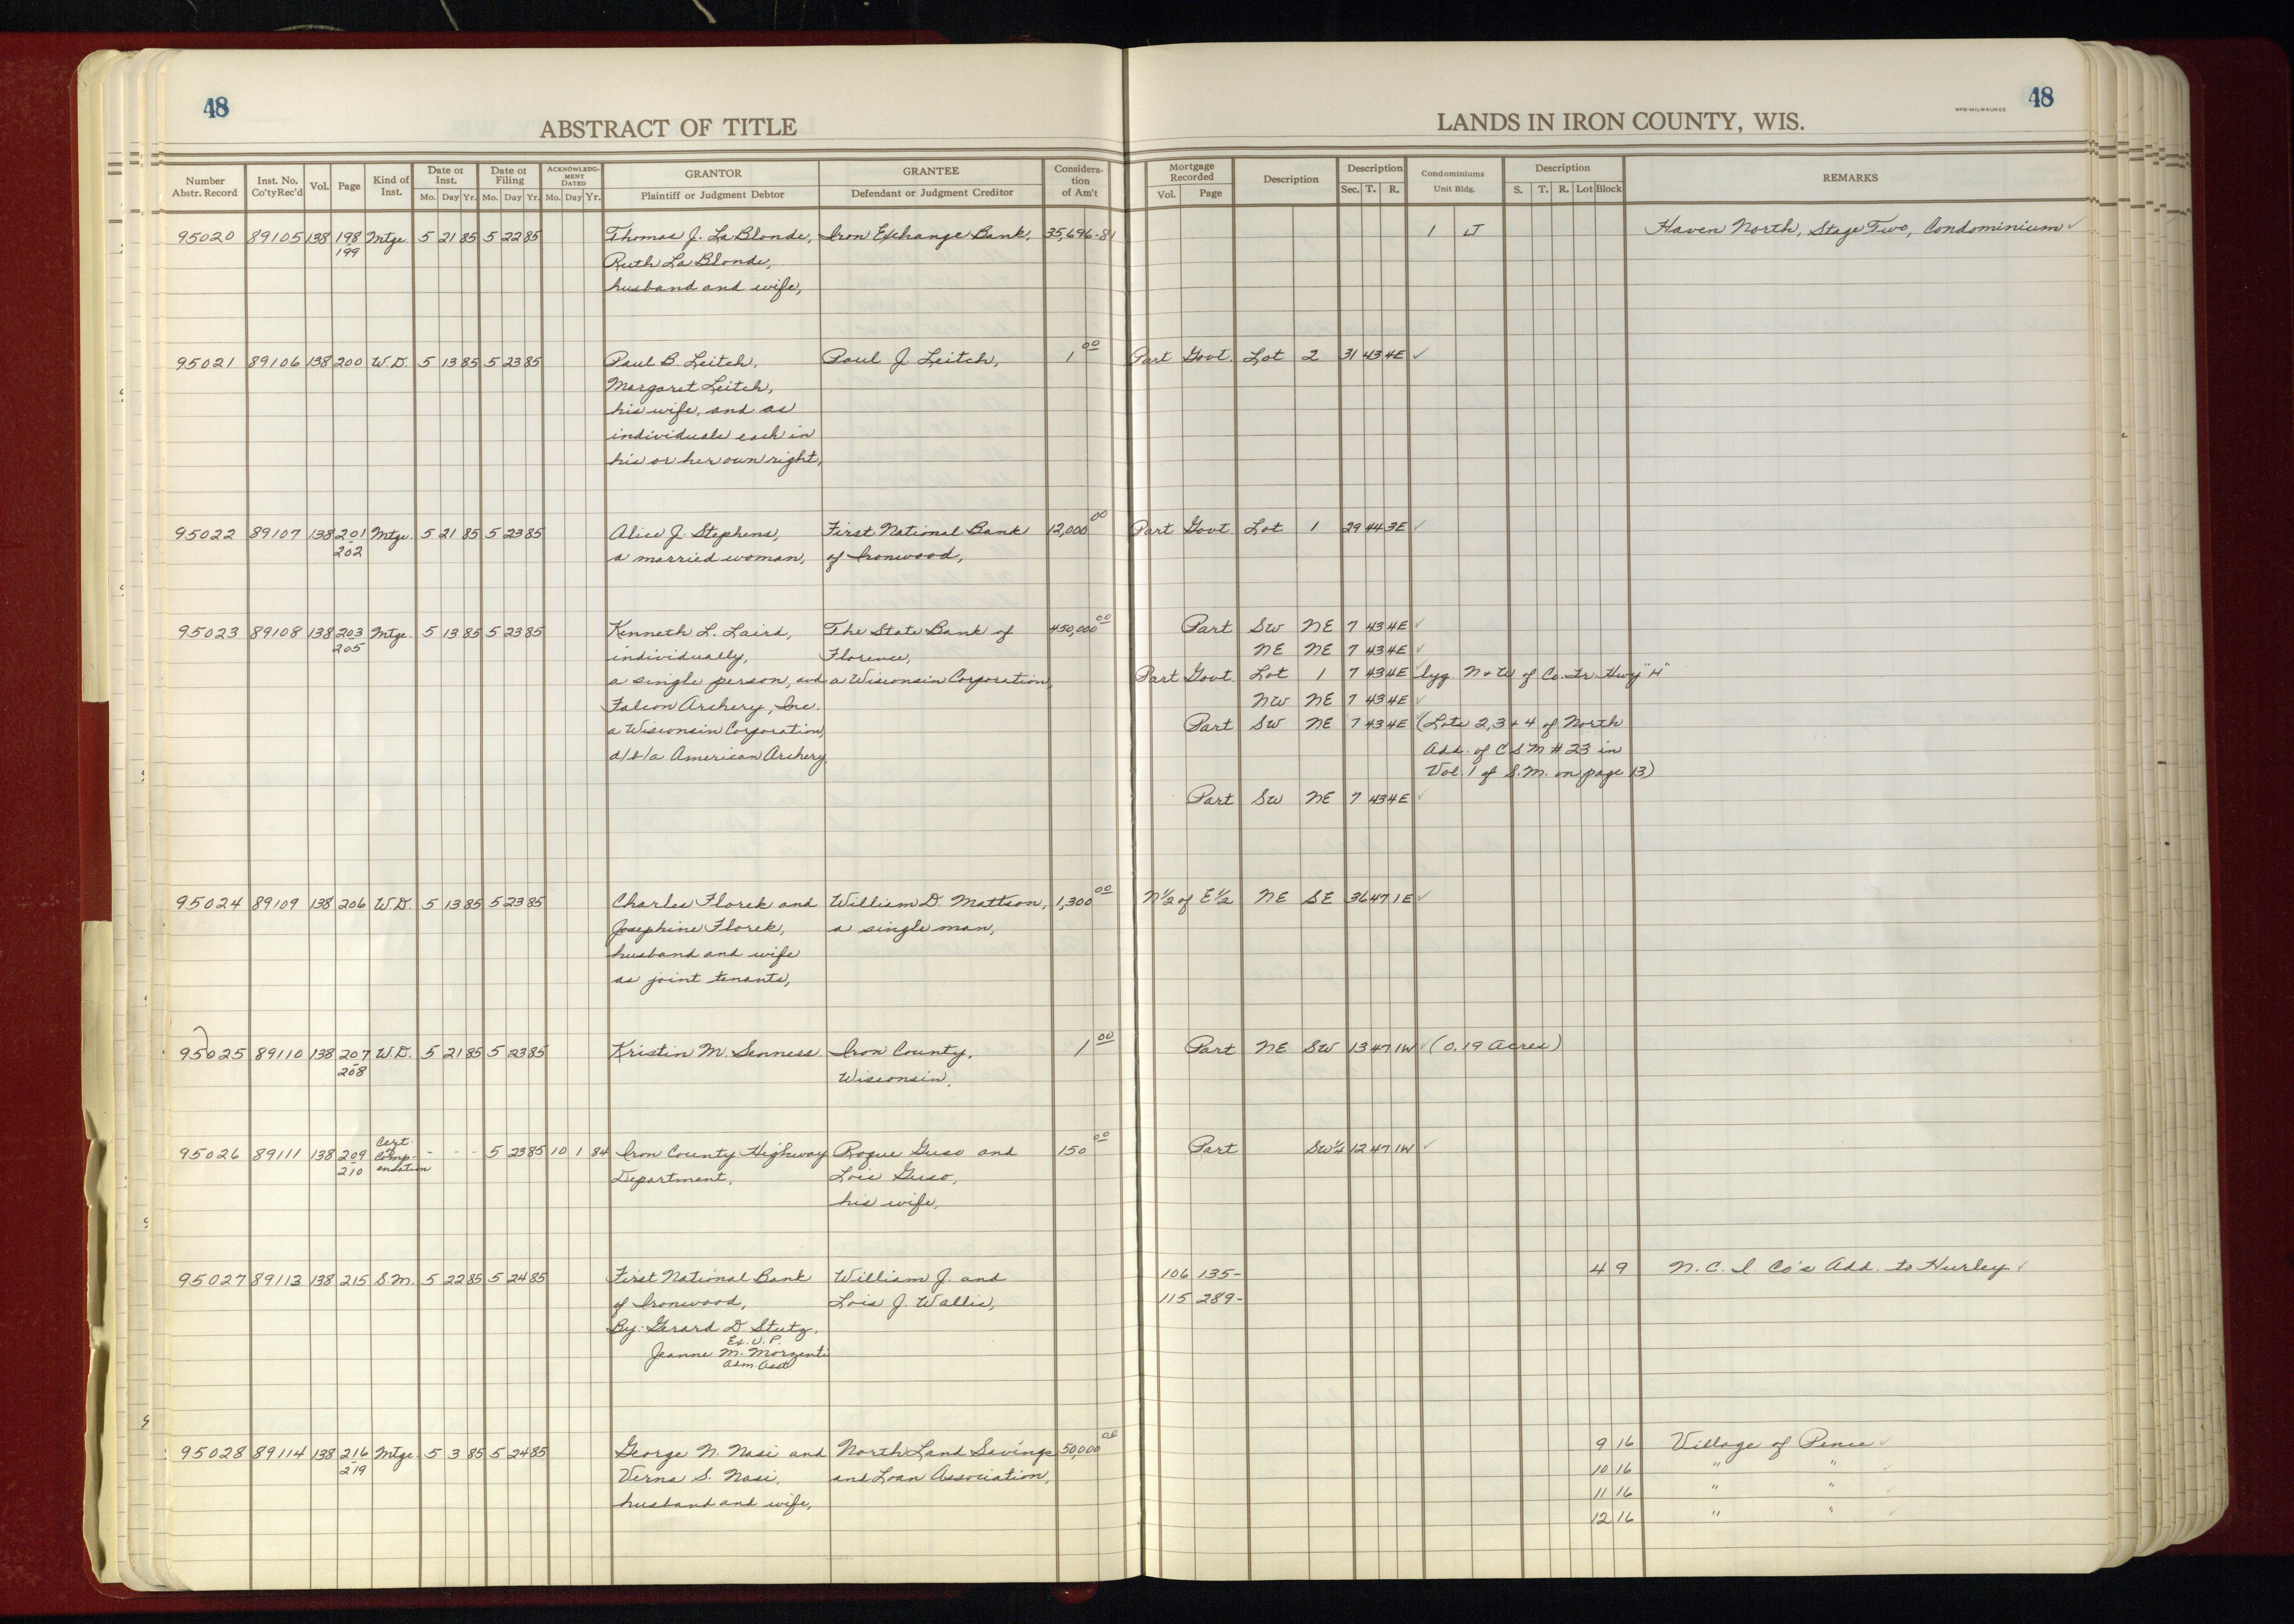 48
ABSTRACT OF TITLE
LANDS IN IRON COUNTY, WIS.
WPB-MILWAUKEE
48
Number Abstr. Record | Inst. No. Co'ty Rec'd | Vol. | Page | Kind of Inst. | Date of Inst. Mo. Day Yr. | Date of Filing Mo. Day Yr. | ACKNOWLEDGMENT DATED Mo. Day Yr. | GRANTOR Plaintiff or Judgment Debtor | GRANTEE Defendant or Judgment Creditor | Consideration of Am't | Mortgage Recorded Vol. Page | Description | Description Sec. T. R. | Condominiums Unit Bldg. | Description S. T. R. Lot Block | REMARKS
95020 89105 138 198 Mtge 5 21 85 5 22 85 Thomas J. La Blonde, Iron Exchange Bank, 35,696-81 1 J Haven North, Stage Two, Condominium ✓
199 Ruth La Blonde,
husband and wife,
95021 89106 138 200 W.D. 5 13 85 5 23 85 Paul B. Leitch, Paul J. Leitch, 1 00 Part Govt. Lot 2 31 43 4E ✓
Margaret Leitch,
his wife, and as
individuals each in
his or her own right,
95022 89107 138 201 Mtge. 5 21 85 5 23 85 Alice J. Stephens, First National Bank 12,000 00 Part Govt. Lot 1 29 44 3E ✓
202 a married woman, of Ironwood,
95023 89108 138 203 Mtge. 5 13 85 5 23 85 Kenneth L. Laird, The State Bank of 450,000 00 Part SW NE 7 43 4E ✓
205 individually, Florence, NE NE 7 43 4E ✓
a single person, and a Wisconsin Corporation, Part Govt. Lot 1 7 43 4E ✓ lyg. N + W of Co. Tr. Hwy "H"
Falcon Archery, Inc. NW NE 7 43 4E ✓
a Wisconsin Corporation, Part SW NE 7 43 4E (Lots 2, 3 + 4 of North
d/b/a American Archery, Add. of CSM # 23 in
Vol. 1 of S.M. on page 13)
Part SW NE 7 43 4E ✓
95024 89109 138 206 W.D. 5 13 85 5 23 85 Charles Florek and William D. Mattson, 1,300 00 N½ of E½ NE SE 36 47 1E ✓
Josephine Florek, a single man,
husband and wife
as joint tenants,
95025 89110 138 207 W.D. 5 21 85 5 23 85 Kristin M. Senness. Iron County, 1 00 Part NE SW 13 47 1W ✓ (0.19 Acres)
208 Wisconsin,
95026 89111 138 209 Cert. of Comp- - - - 5 23 85 10 1 84 Iron County Highway Roque Guso and 150 00 Part SW¼ 12 47 1W ✓
210 ensation Department, Lois Guso,
his wife,
95027 89113 138 215 S.M. 5 22 85 5 24 85 First National Bank William J. and 106 135- 4 9 N. C. I. Co's Add. to Hurley ✓
of Ironwood, Lois J. Wallis, 115 289-
By: Gerard D. Stutz,
Ex. V. P.
Jeanne M. Morzenti
Adm. Asst.
95028 89114 138 216 Mtge. 5 3 85 5 24 85 George N. Nasi and North Land Savings 50,000 00 9 16 Village of Pence ✓
219 Verna S. Nasi, and Loan Association, 10 16 " " ✓
husband and wife, 11 16 " " ✓
12 16 " " ✓